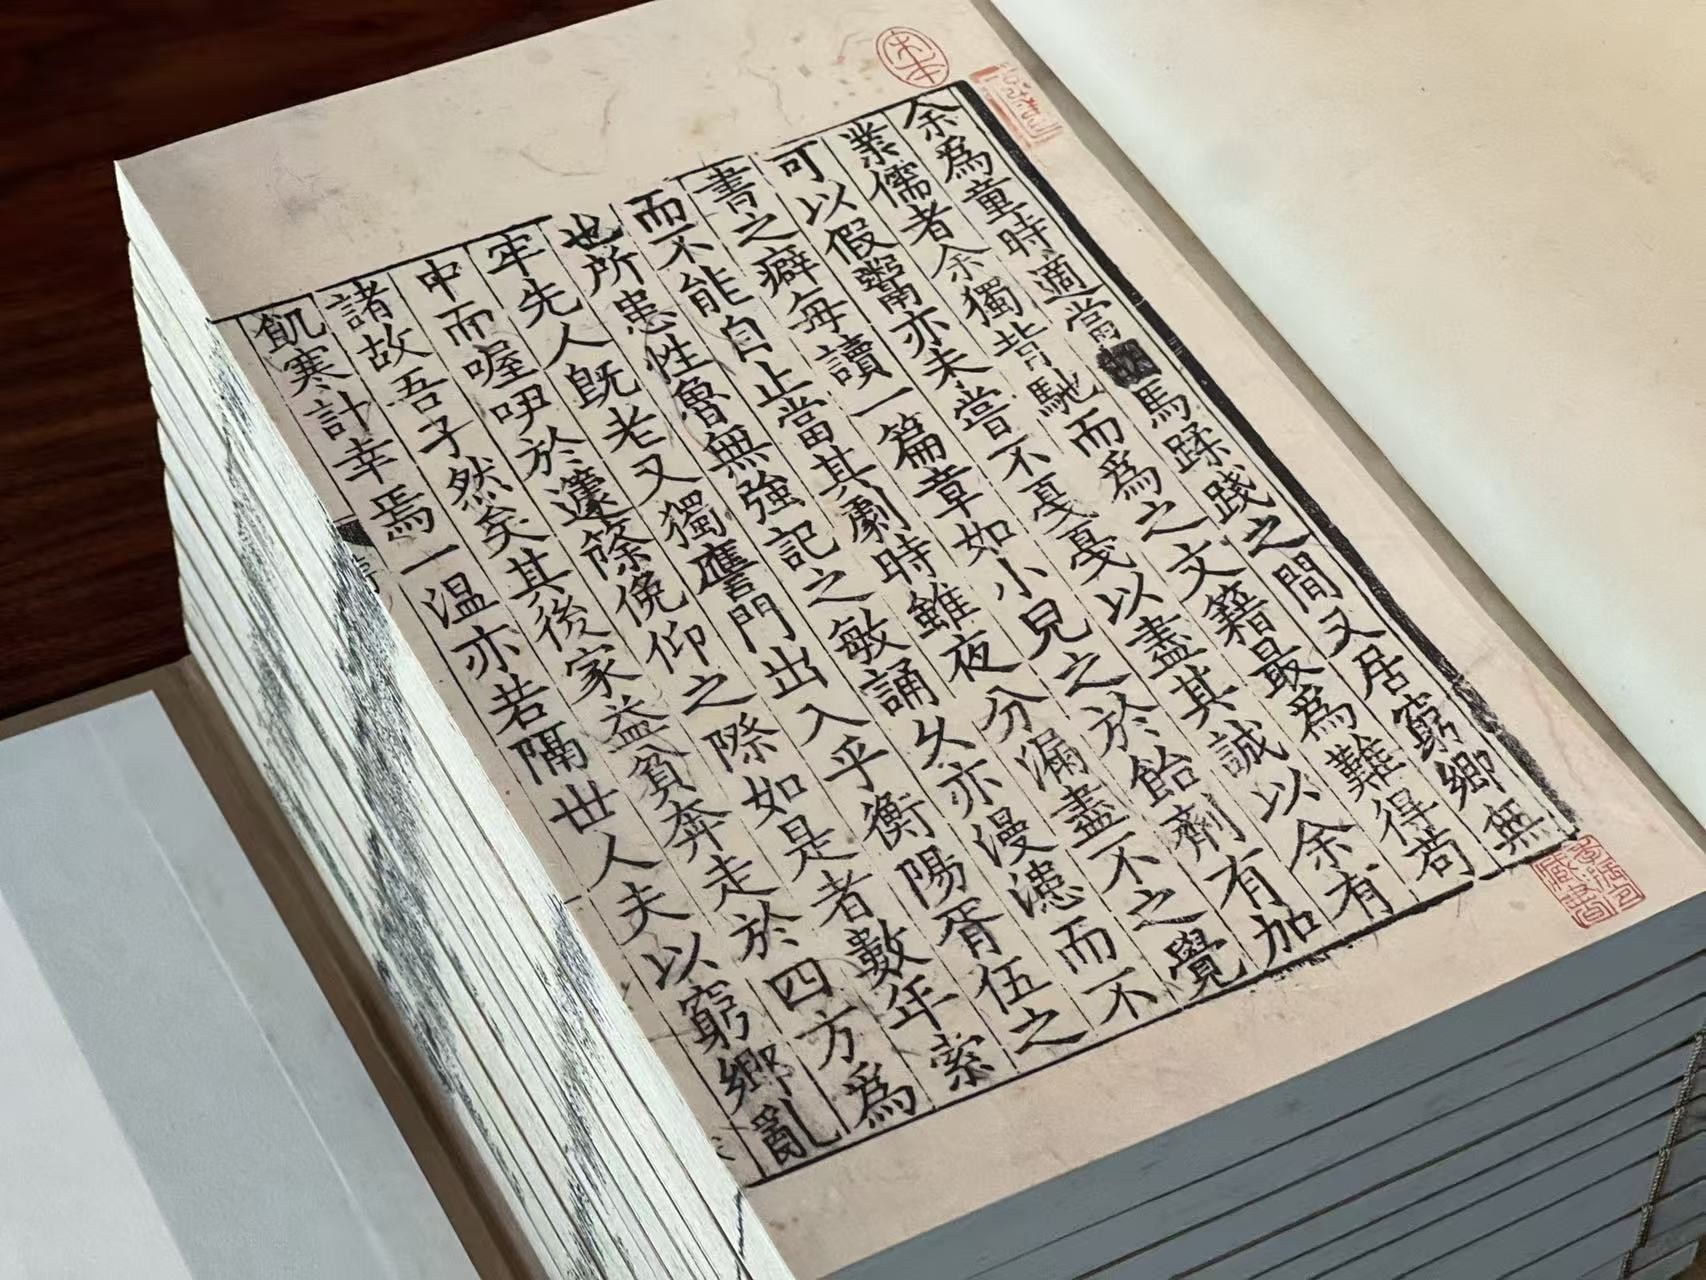 余爲童時適當馬蹂踐之間又居窮鄉無
業儒者余獨背馳而爲之文籍最爲難得苟
可以假鬻亦未嘗不戛戛以盡其誠以余有
書之癖每讀一篇章如小兒之於飴劑有加
而不能自止當其劇時雖夜分漏盡不之覺
也所患性魯無強記之敏誦久亦漫漶而不
牢先人既老又獨譍門出入乎衡陽胥伍之
中而喔吚於籧篨俛仰之際如是者數年索
諸故吾子然矣其後家益貧奔走於四方爲
飢寒計幸焉一温亦若隔世人夫以窮鄉亂